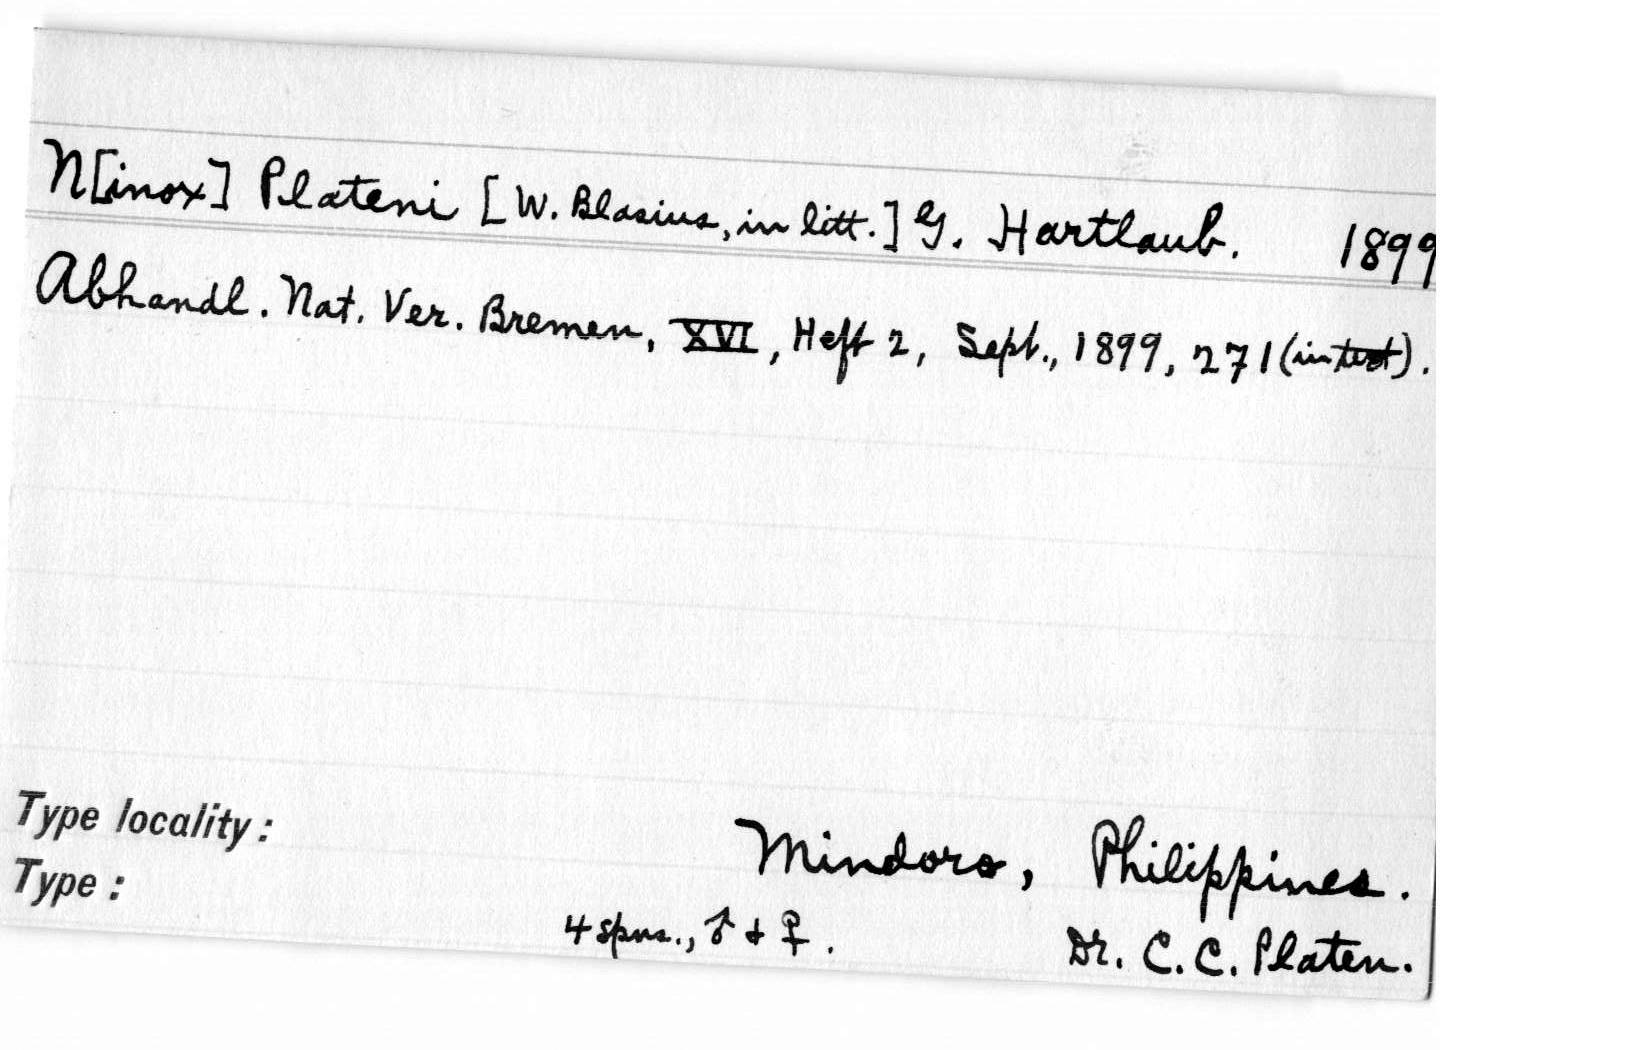 N[inox] Plateni [W. Blasius, in litt.] G. Hartlaub. 1899
Abhandl. Nat. Ver. Bremen, XVI, Heft 2, Sept., 1899, 271 (in text).
Type locality: Mindoro, Philippines.
Type: 4 spns., ♂ + ♀. Dr. C. C. Platen.